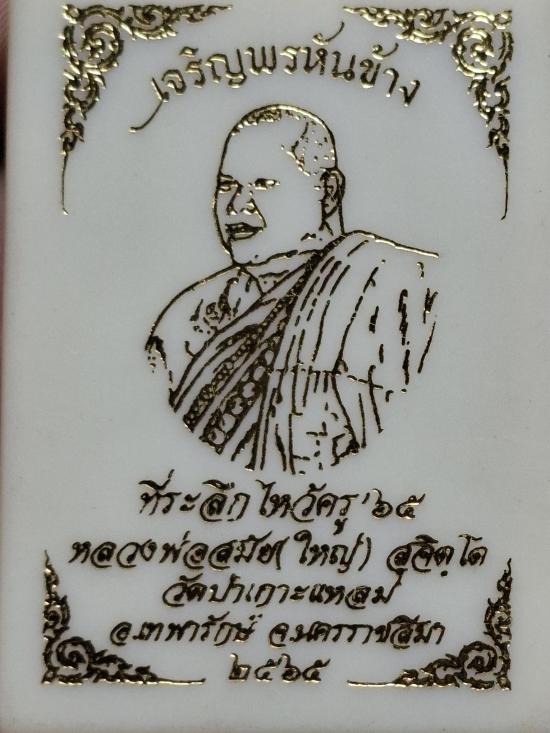 เจริญพรหันข้าง
ที่ระลึกไหว้ครู'๖๕
หลวงพ่อสมัย(ใหญ่) สุจิตฺโต
วัดป่าเกาะแหลม
อ.เทพารักษ์ จ.นครราชสีมา
๒๕๖๕